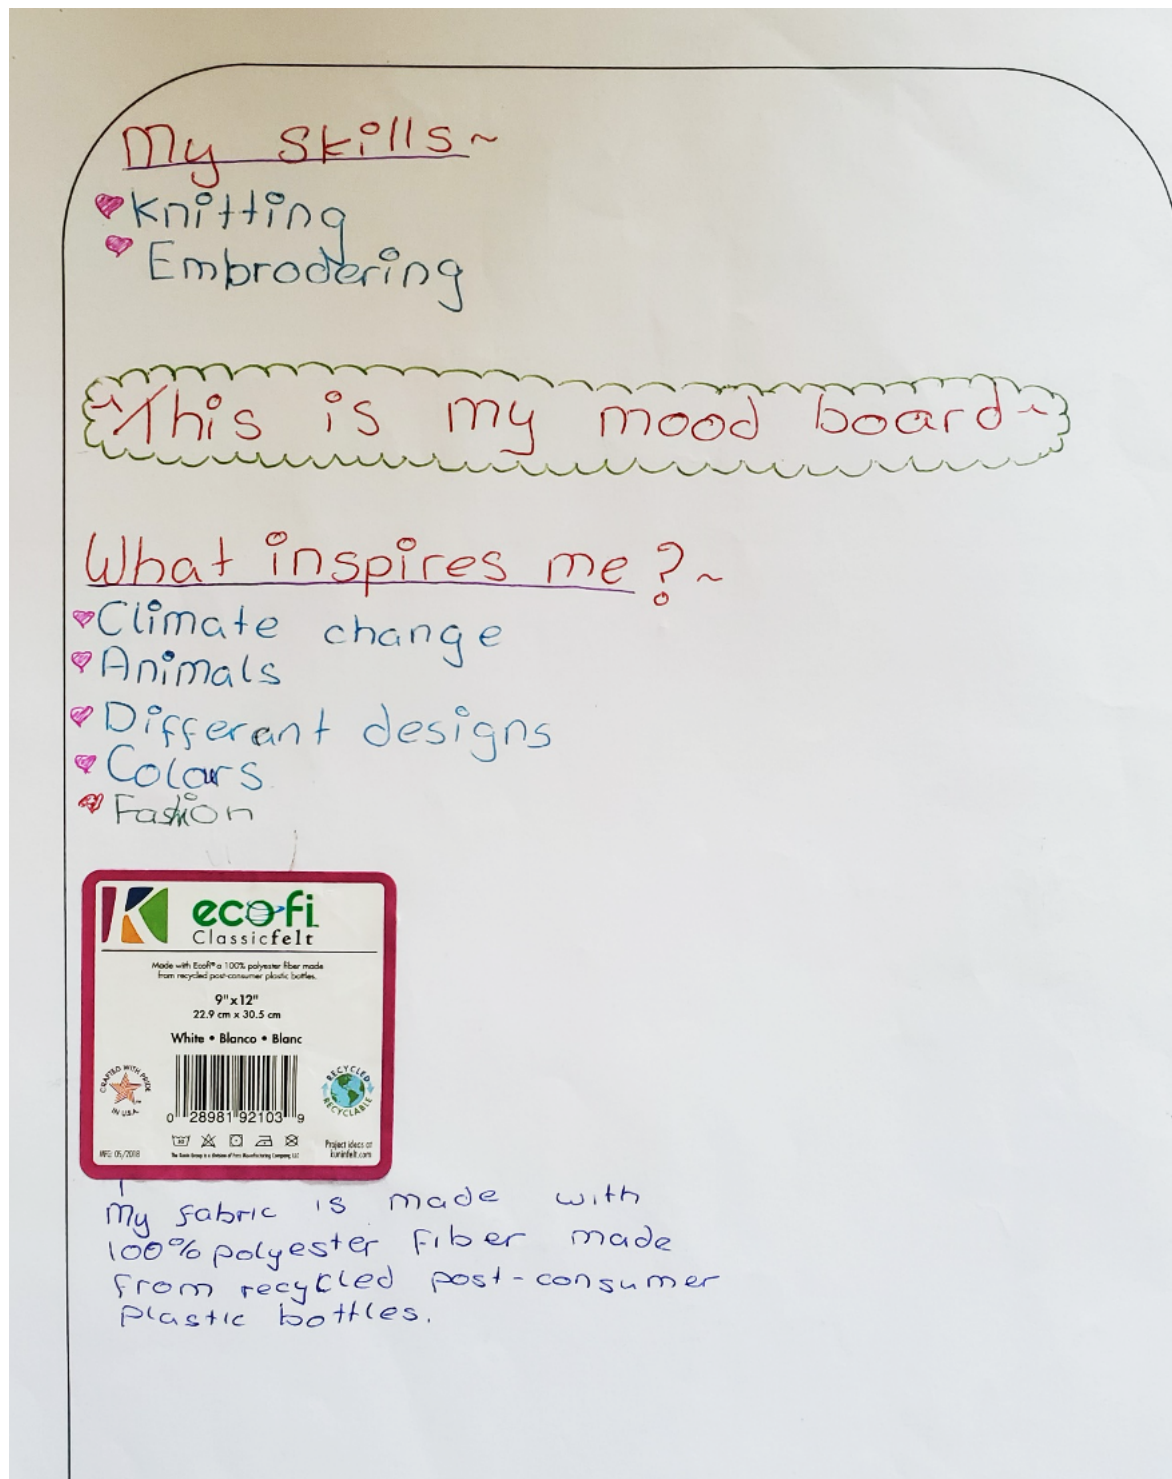 My Skills~
Knitting
Embrodering
~This is my mood board~
What inspires me?~
Climate change
Animals
Different designs
Colors
Fashion
K
ecofi
Classicfelt
Made with Ecofi® a 100% polyester fiber made
from recycled post-consumer plastic bottles.
9" x 12"
22.9 cm x 30.5 cm
White • Blanco • Blanc
CRAFTED WITH PRIDE
IN U.S.A.
RECYCLED
RECYCLABLE
0 28981 92103 9
MFG 05/2018
Project ideas at
kuninfelt.com
My fabric is made with
100% polyester fiber made
from recycled post-consumer
plastic bottles.